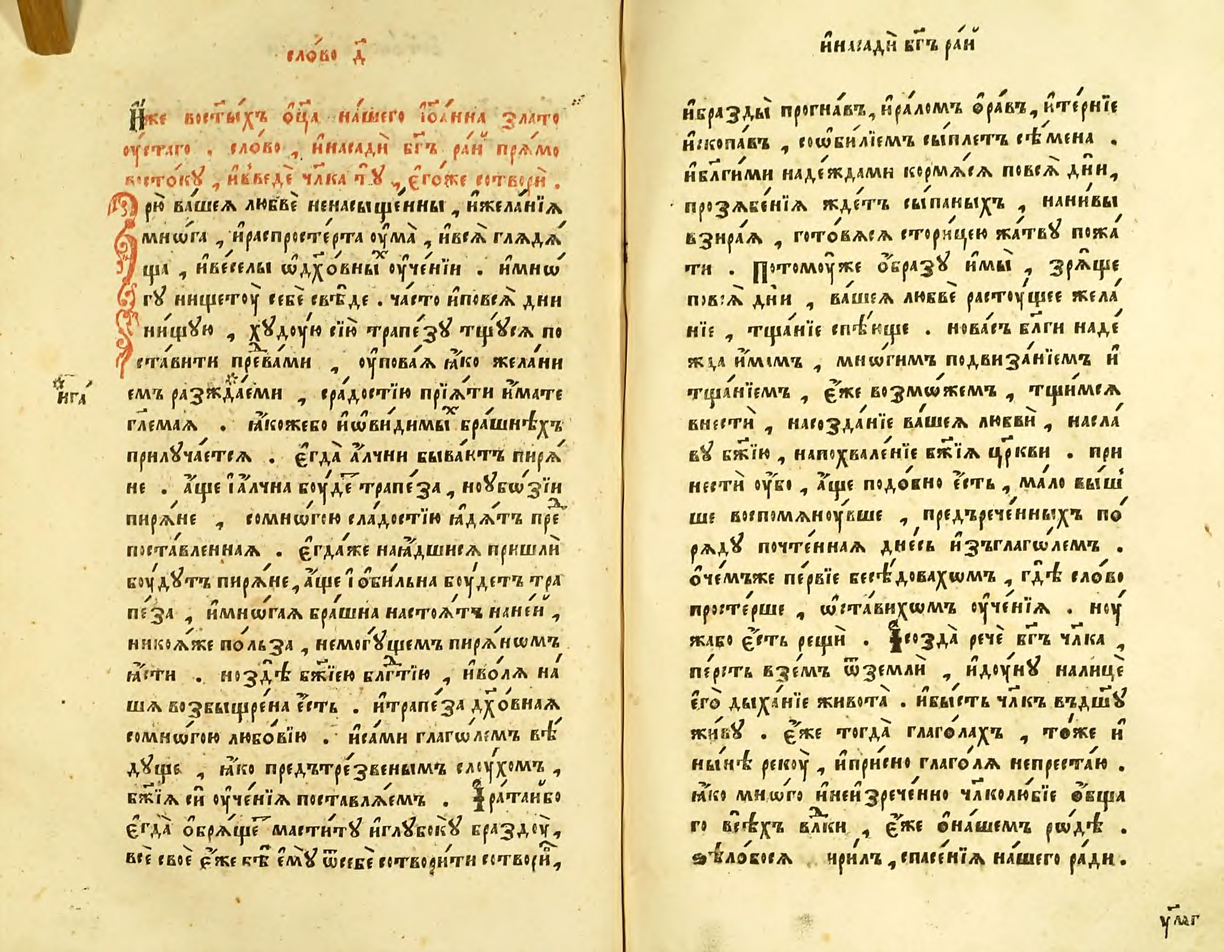 сло́во д҃
И҆́же во ст҃ы́хъ ѻ҆ц҃а̀ на́шего і҆ѡа́нна злато
ѹ҆́стаго . сло́во , и҆насадѝ бг҃ъ ра́й прѧ́мо
восто́кꙋ , и҆введѐ чл҃ка тꙋ̀ , є҆го́же сотворѝ .
Зрю̀ ва́шеѧ любвѐ ненасыще́нны , и҆жела́нїѧ
мнѡ́га , и҆распросте́рта ѹ҆ма̀ , и҆всѧ̀ глѧ́дѧ
ща , и҆ве́селы ѡ҆дх҃о́вны^х ѹ҆че́нїи . и҆мнѡ́
гꙋ нищетѹ̀ себѐ свѣ́де . ча́сто и҆повсѧ̀ дни
ни́щꙋю , хꙋдо́ую сїю̀ трапе́зꙋ тщꙋ́сѧ по
ста́вити пре^два́ми , ѹ҆пова́ѧ ꙗ҆́ко жела́ни
емъ разжда́еми , сра́достїю прїѧ́ти и҆́мате
и҆га́
гл҃емаѧ . ꙗ҆́коже бо и҆ѡ҆ви́димы^х бра́шнѣхъ
прилꙋча́етсѧ . є҆гда̀ а҆́лчни быва́ютъ пирѧ́
не . а҆́ще і҆ а҆́лчна бѹ́де^т трапе́за , но ѹ҆бѡ́зїи
пирѧ́не , сомно́гою сла́достїю ꙗ҆дѧ́тъ пре^д
поста́вленнаѧ . є҆гда́же наꙗ́дшиисѧ пришлѝ
бѹ́дꙋтъ пирѧ́не , а҆́ще і҆ ѻ҆би́льна бѹ́детъ тра
пе́за , и҆мнѡ́гаѧ бра́шна настоѧ́тъ нане́й ,
никоѧ́же по́льза , немогꙋ́щемъ пирѧ́номъ
ꙗ҆́сти . но здѣ̀ бж҃їею блг҃^дтїю , и҆во́лѧ на́
ша возвы́щрена є҆́сть . и҆трапе́за дх҃о́внаѧ
сомно́гою любо́вїю . и҆са́ми глаго́лемъ вѣ́
дꙋще , ꙗ҆́ко предътре́звенымъ слѹ́хомъ ,
бж҃їѧ сѝ ѹ҆че́нїѧ поставлѧ́емъ . І҆рата́й бо
є҆гда̀ ѻ҆брѧ́ще^т масти́тꙋ и҆глꙋбо́кꙋ браздѹ̀ ,
всѐ своѐ є҆́же бѣ̀ є҆мꙋ̀ ѿсебѐ сотвори́ти сотворѝ ,
и҆насадѝ бг҃ъ ра́й
и҆бразды̀ прогна́въ , и҆ра́ломъ ѻ҆ра́въ , и҆те́рнїе
и҆скопа́въ , сошби́лїемъ сы́плетъ сѣ́мена .
и҆блг҃и́ми наде́ждами кормѧ́сѧ повсѧ̀ дни̑,
прозѧбе́нїѧ жде́тъ сы́паныхъ , нани́вы
взира́ѧ , гото́вѧсѧ стори́цею жа́твꙋ пожа́
ти . Потомѹ́же ѻ҆́бразꙋ и҆мы̀ , зрѧ́ще
повсѧ̀ дни̑ , ва́шеѧ любвѐ растѹ́щее жела́
нїе , тща́нїе спѣ́юще . нова́съ бл҃ги наде́
жда и҆́мамъ , мнѡ́гимъ подвиза́нїемъ и҆
тща́нїемъ , є҆́же возмо́жемъ , тщи́мсѧ
внестѝ , насозда́нїе ва́шеѧ любвѝ , насла́
вꙋ бж҃їю , напохвале́нїе бж҃їѧ цр҃кви . при
нестѝ ѹ҆́бо , а҆́ще подо́бно є҆́сть , ма́ло вы́ш
ше воспомѧнѹ́вше , предърече́нныхъ по
рѧ́дꙋ почте́ннаѧ дне́сь и҆зъглаго́лемъ .
ѻ҆че́мъже пе́рвїе бесѣ́довахѡмъ , гдѣ̀ сло́во
просте́рше , ѡ҆ста́вихѡмъ ѹ҆че́нїѧ . нѹ́
жа бо є҆́сть рещѝ . І҆созда̀ речѐ бг҃ъ чл҃ка ,
пе́рсть взе́мъ ѿземлѝ , и҆дѹ́нꙋ налицѐ
є҆гѡ̀ дыха́нїе живота̀ . и҆бы́сть чл҃къ въдш҃ꙋ
жи́вꙋ . є҆́же тогда̀ глаго́лахъ , то́же и҆
ны́нѣ рекѹ̀ , и҆при́сно глаго́лѧ непреста́ю .
ꙗ҆́ко мно́го и҆неи҆зрече́нно чл҃колю́бїе ѻ҆́бща
го всѣ́хъ влⷣки , є҆́же ѻ҆на́шемъ ро́дѣ .
ѕѣло́босѧ ирилъ , спасе́нїѧ на́шего ра́ди .